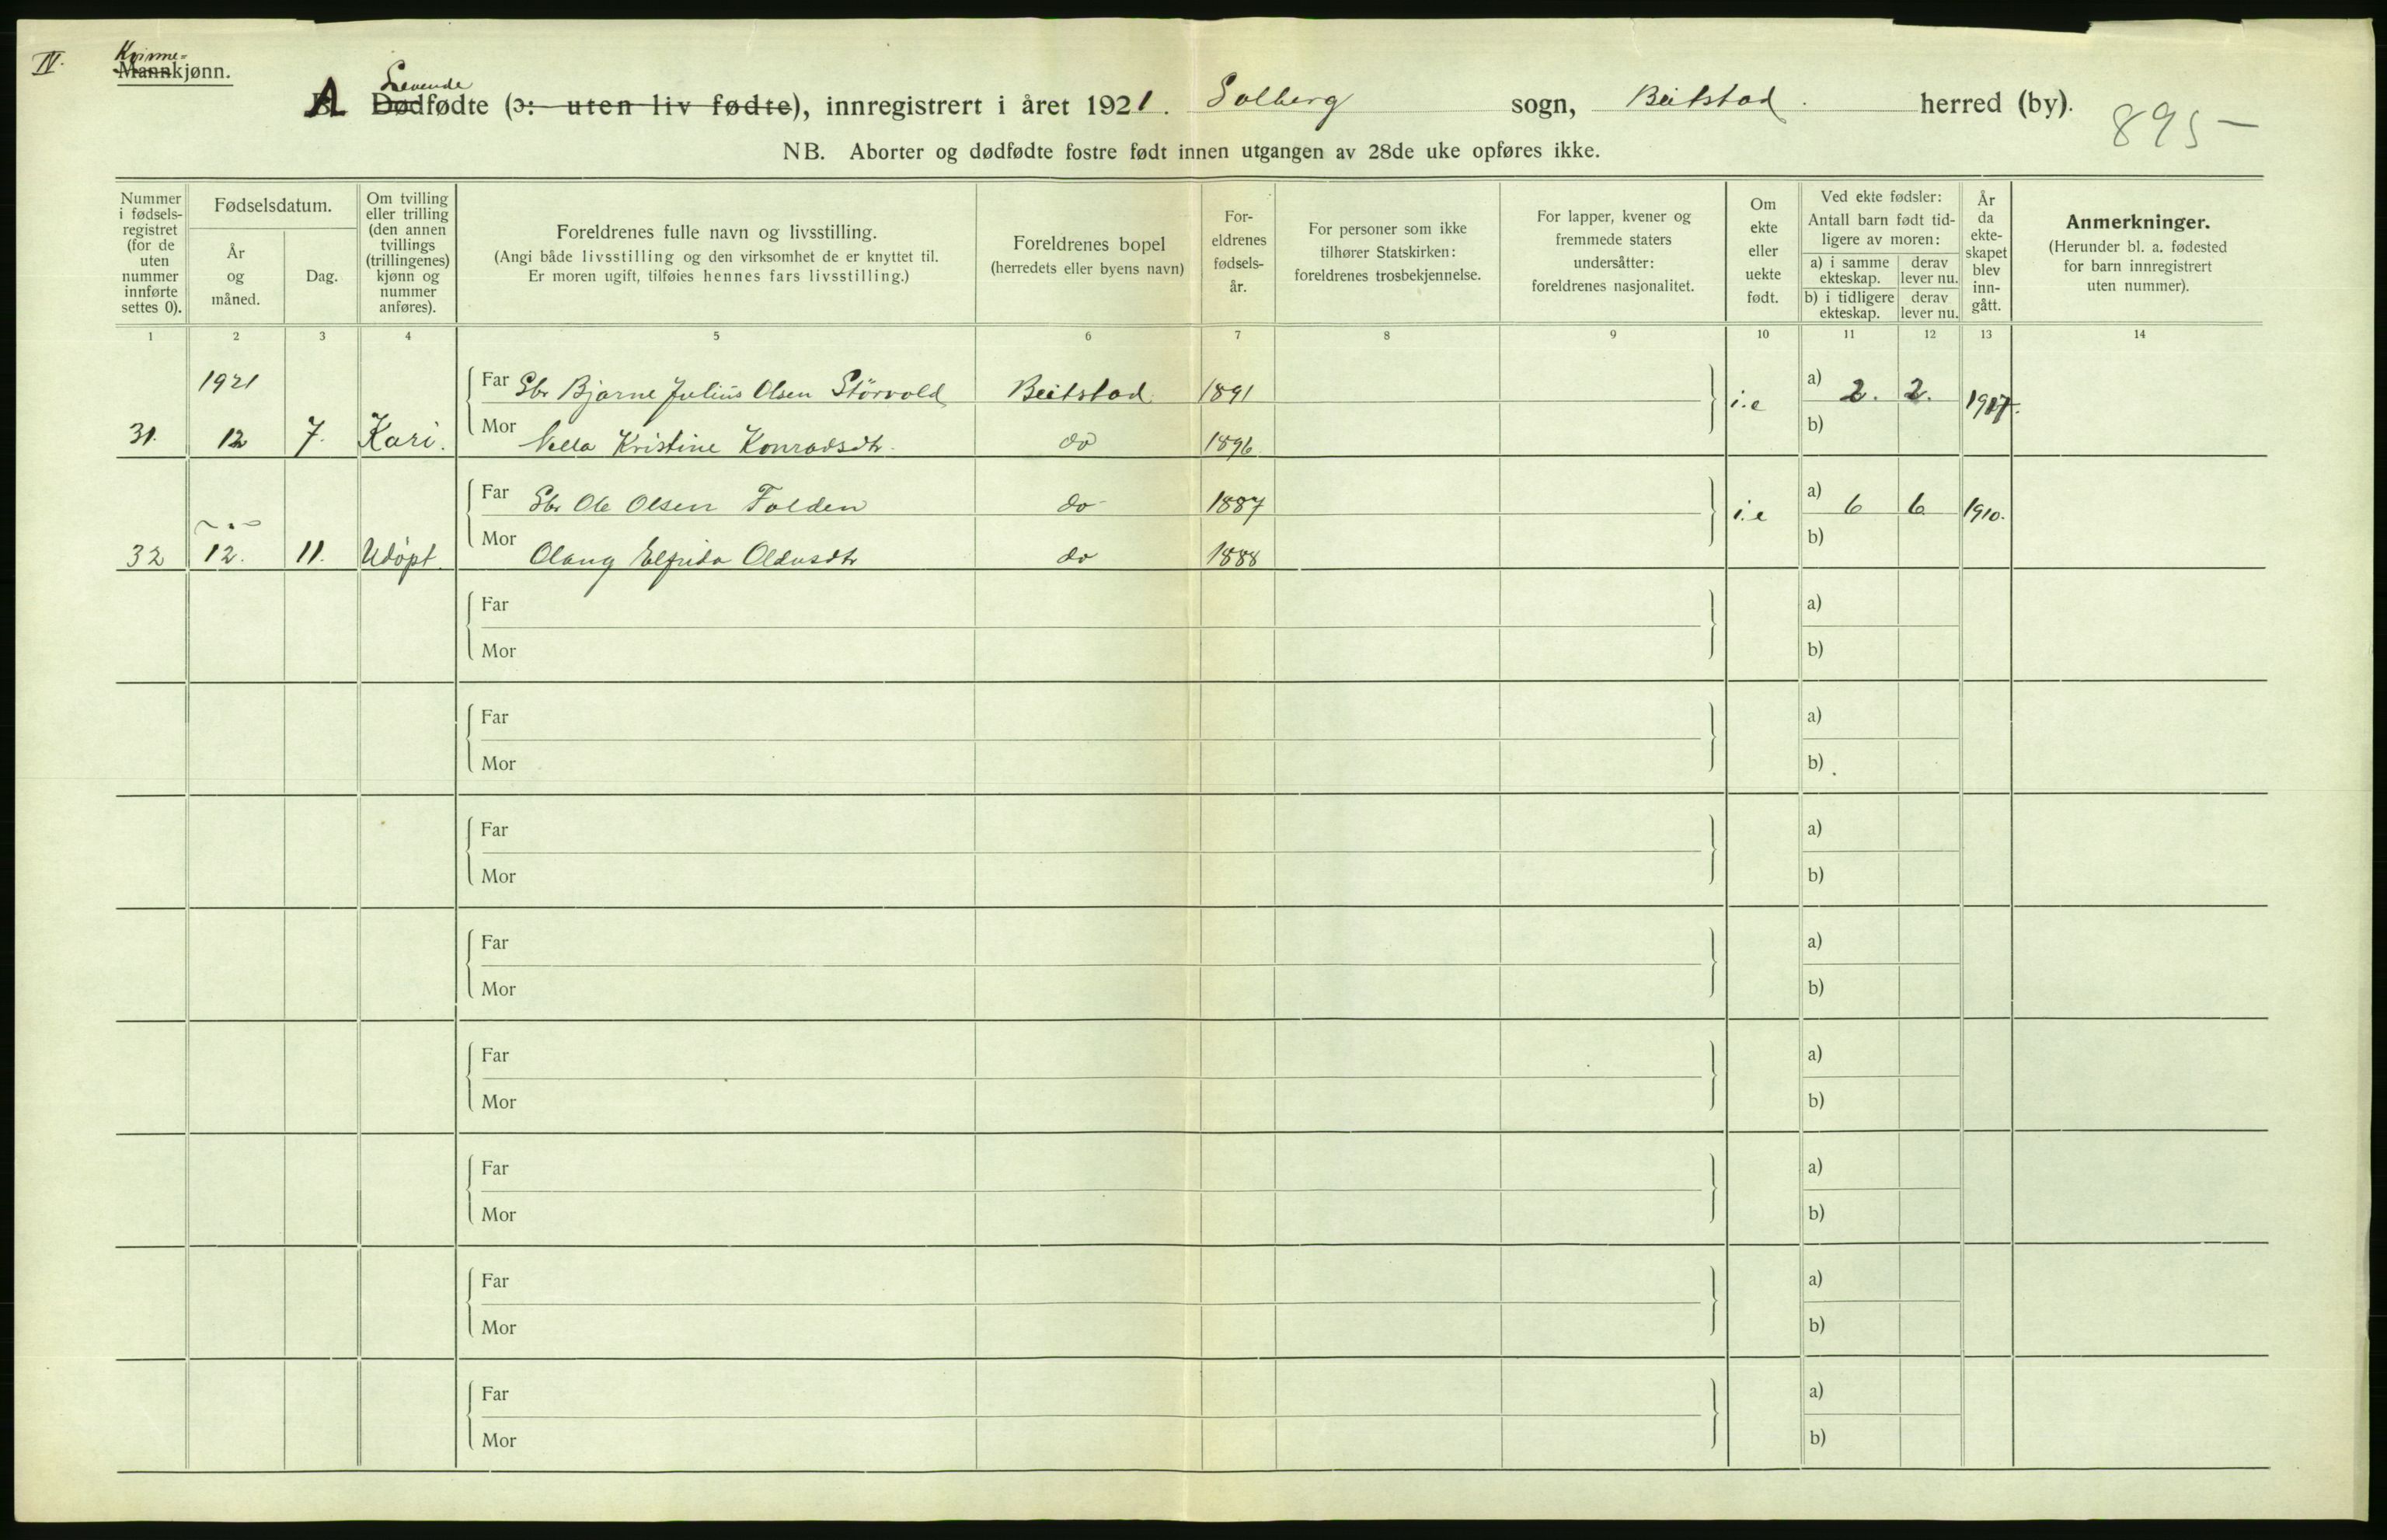 IV.
Kvinne-
Mannkjønn.
Levende
A Dødfødte (ɔ: uten liv fødte), innregistrert i året 1921. Solberg sogn, Beitstad. herred (by).
895 —
NB. Aborter og dødfødte fostre født innen utgangen av 28de uke opføres ikke.
Nummer i fødselsregistret (for de uten nummer innførte settes 0).
Fødselsdatum.
År og måned.
Dag.
Om tvilling eller trilling (den annen tvillings (trillingenes) kjønn og nummer anføres).
Foreldrenes fulle navn og livsstilling.
(Angi både livsstilling og den virksomhet de er knyttet til.
Er moren ugift, tilføies hennes fars livsstilling.)
Foreldrenes bopel
(herredets eller byens navn)
For-eldrenes fødsels-år.
For personer som ikke tilhører Statskirken: foreldrenes trosbekjennelse.
For lapper, kvener og fremmede staters undersåtter: foreldrenes nasjonalitet.
Om ekte eller uekte født.
Ved ekte fødsler:
Antall barn født tid-ligere av moren:
a) i samme ekteskap. derav lever nu.
b) i tidligere ekteskap. derav lever nu.
År da ekte-skapet blev inn-gått.
Anmerkninger.
(Herunder bl. a. fødested for barn innregistrert uten nummer).
1 2 3 4 5 6 7 8 9 10 11 12 13 14
1921 Far Gbr Bjarne Julius Olsen Størvold Beitstad. 1891 i.e a) 2. 2. 1917.
31. 12 7. Kari. Mor Nella Kristine Konradsdtr. do 1896. b)
Far Gbr Ole Olsen Folden do 1887 i.e a) 6 6 1910.
32 12. 11. Udöpt. Mor Olaug Elfrida Oldusdtr do 1888 b)
Far a)
Mor b)
Far a)
Mor b)
Far a)
Mor b)
Far a)
Mor b)
Far a)
Mor b)
Far a)
Mor b)
Far a)
Mor b)
Far a)
Mor b)